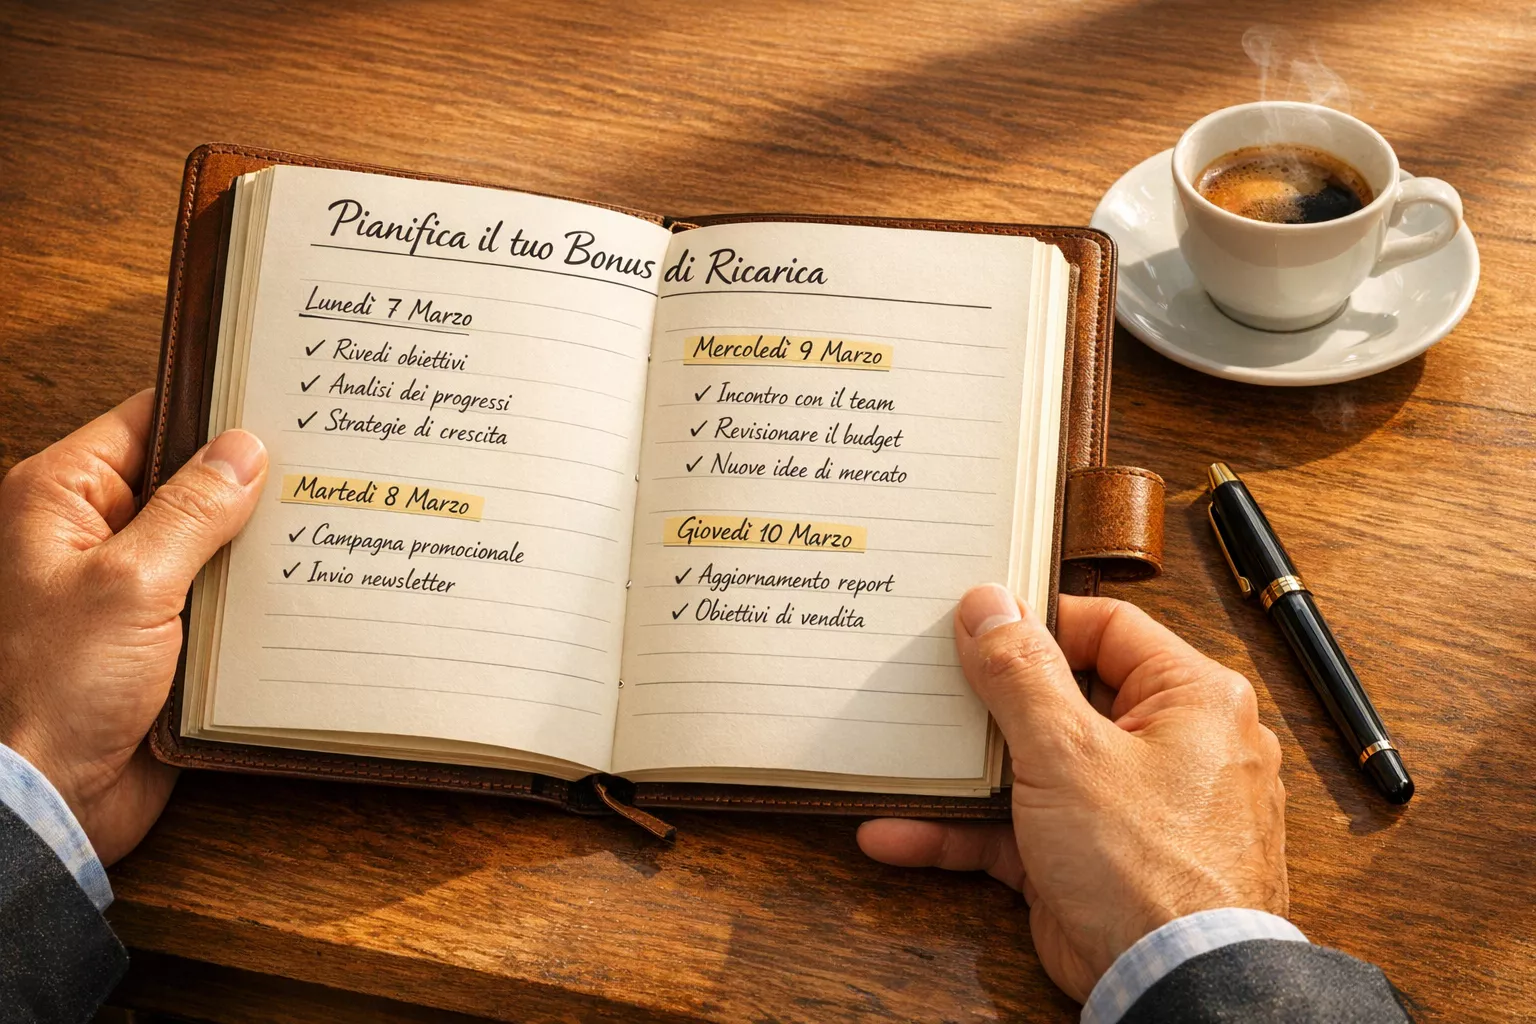 Pianifica il tuo Bonus di Ricarica
Lunedì 7 Marzo
✓ Rivedi obiettivi
✓ Analisi dei progressi
✓ Strategie di crescita
Martedì 8 Marzo
✓ Campagna promocionale
✓ Invio newsletter
Mercoledì 9 Marzo
✓ Incontro con il team
✓ Revisionare il budget
✓ Nuove idee di mercato
Giovedì 10 Marzo
✓ Aggiornamento report
✓ Obiettivi di vendita